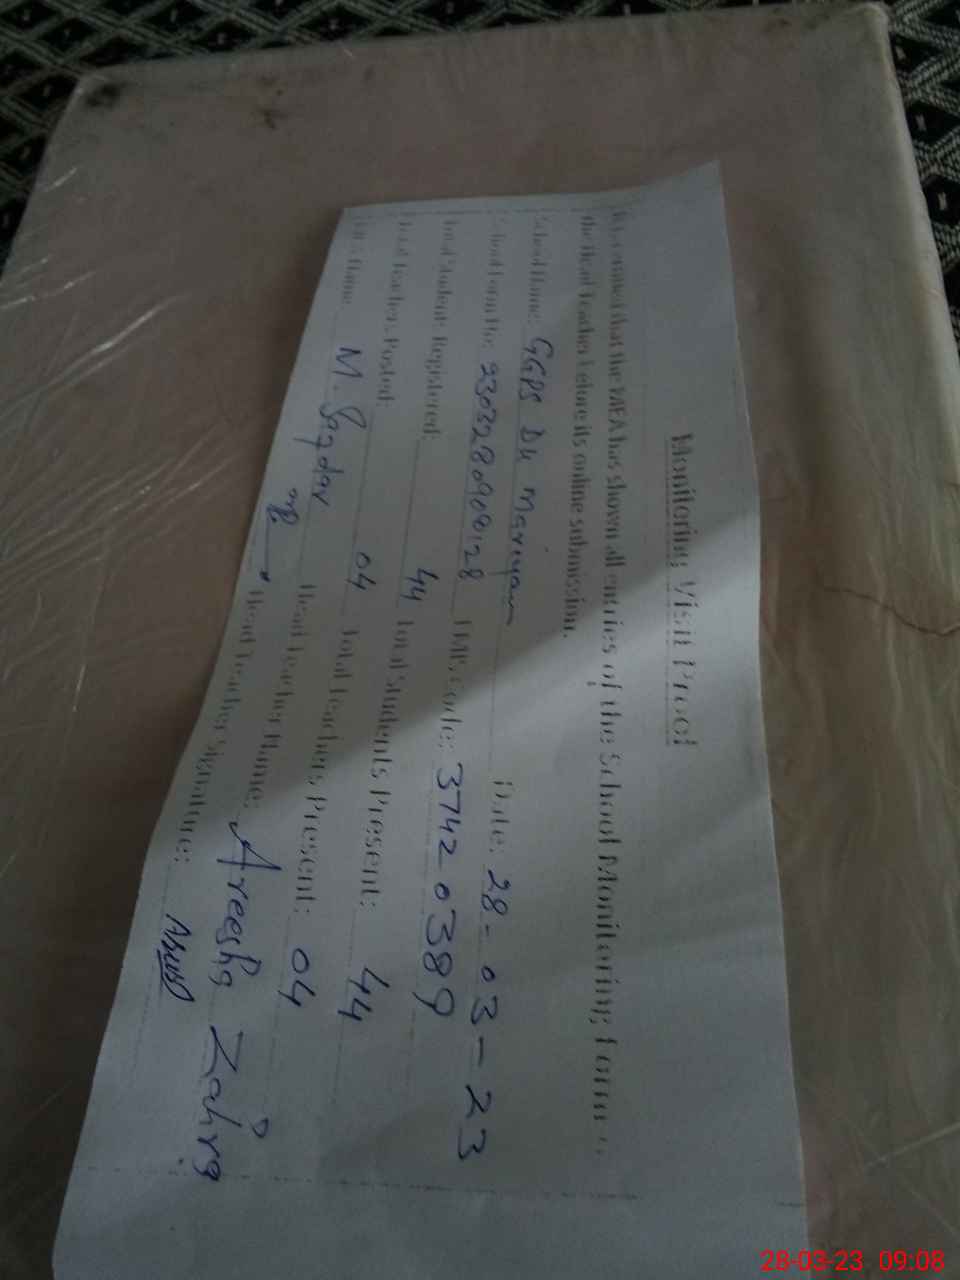 Monitoring Visit Proof
that the MEA has shown all entries of the School Monitoring Form
the Head Teacher before its online submission.
School Name: GGPS DK Mariyam Date: 28-03-23
School Form No: 230328090128 EMIS Code: 37420389
Total Students Registered: 44 Total Students Present: 44
Total Teachers Posted: 04 Total Teachers Present: 04
Name: M. Head Teacher Name: Areesha Zahra
Head Teacher Signature:
28-03-23 09:08